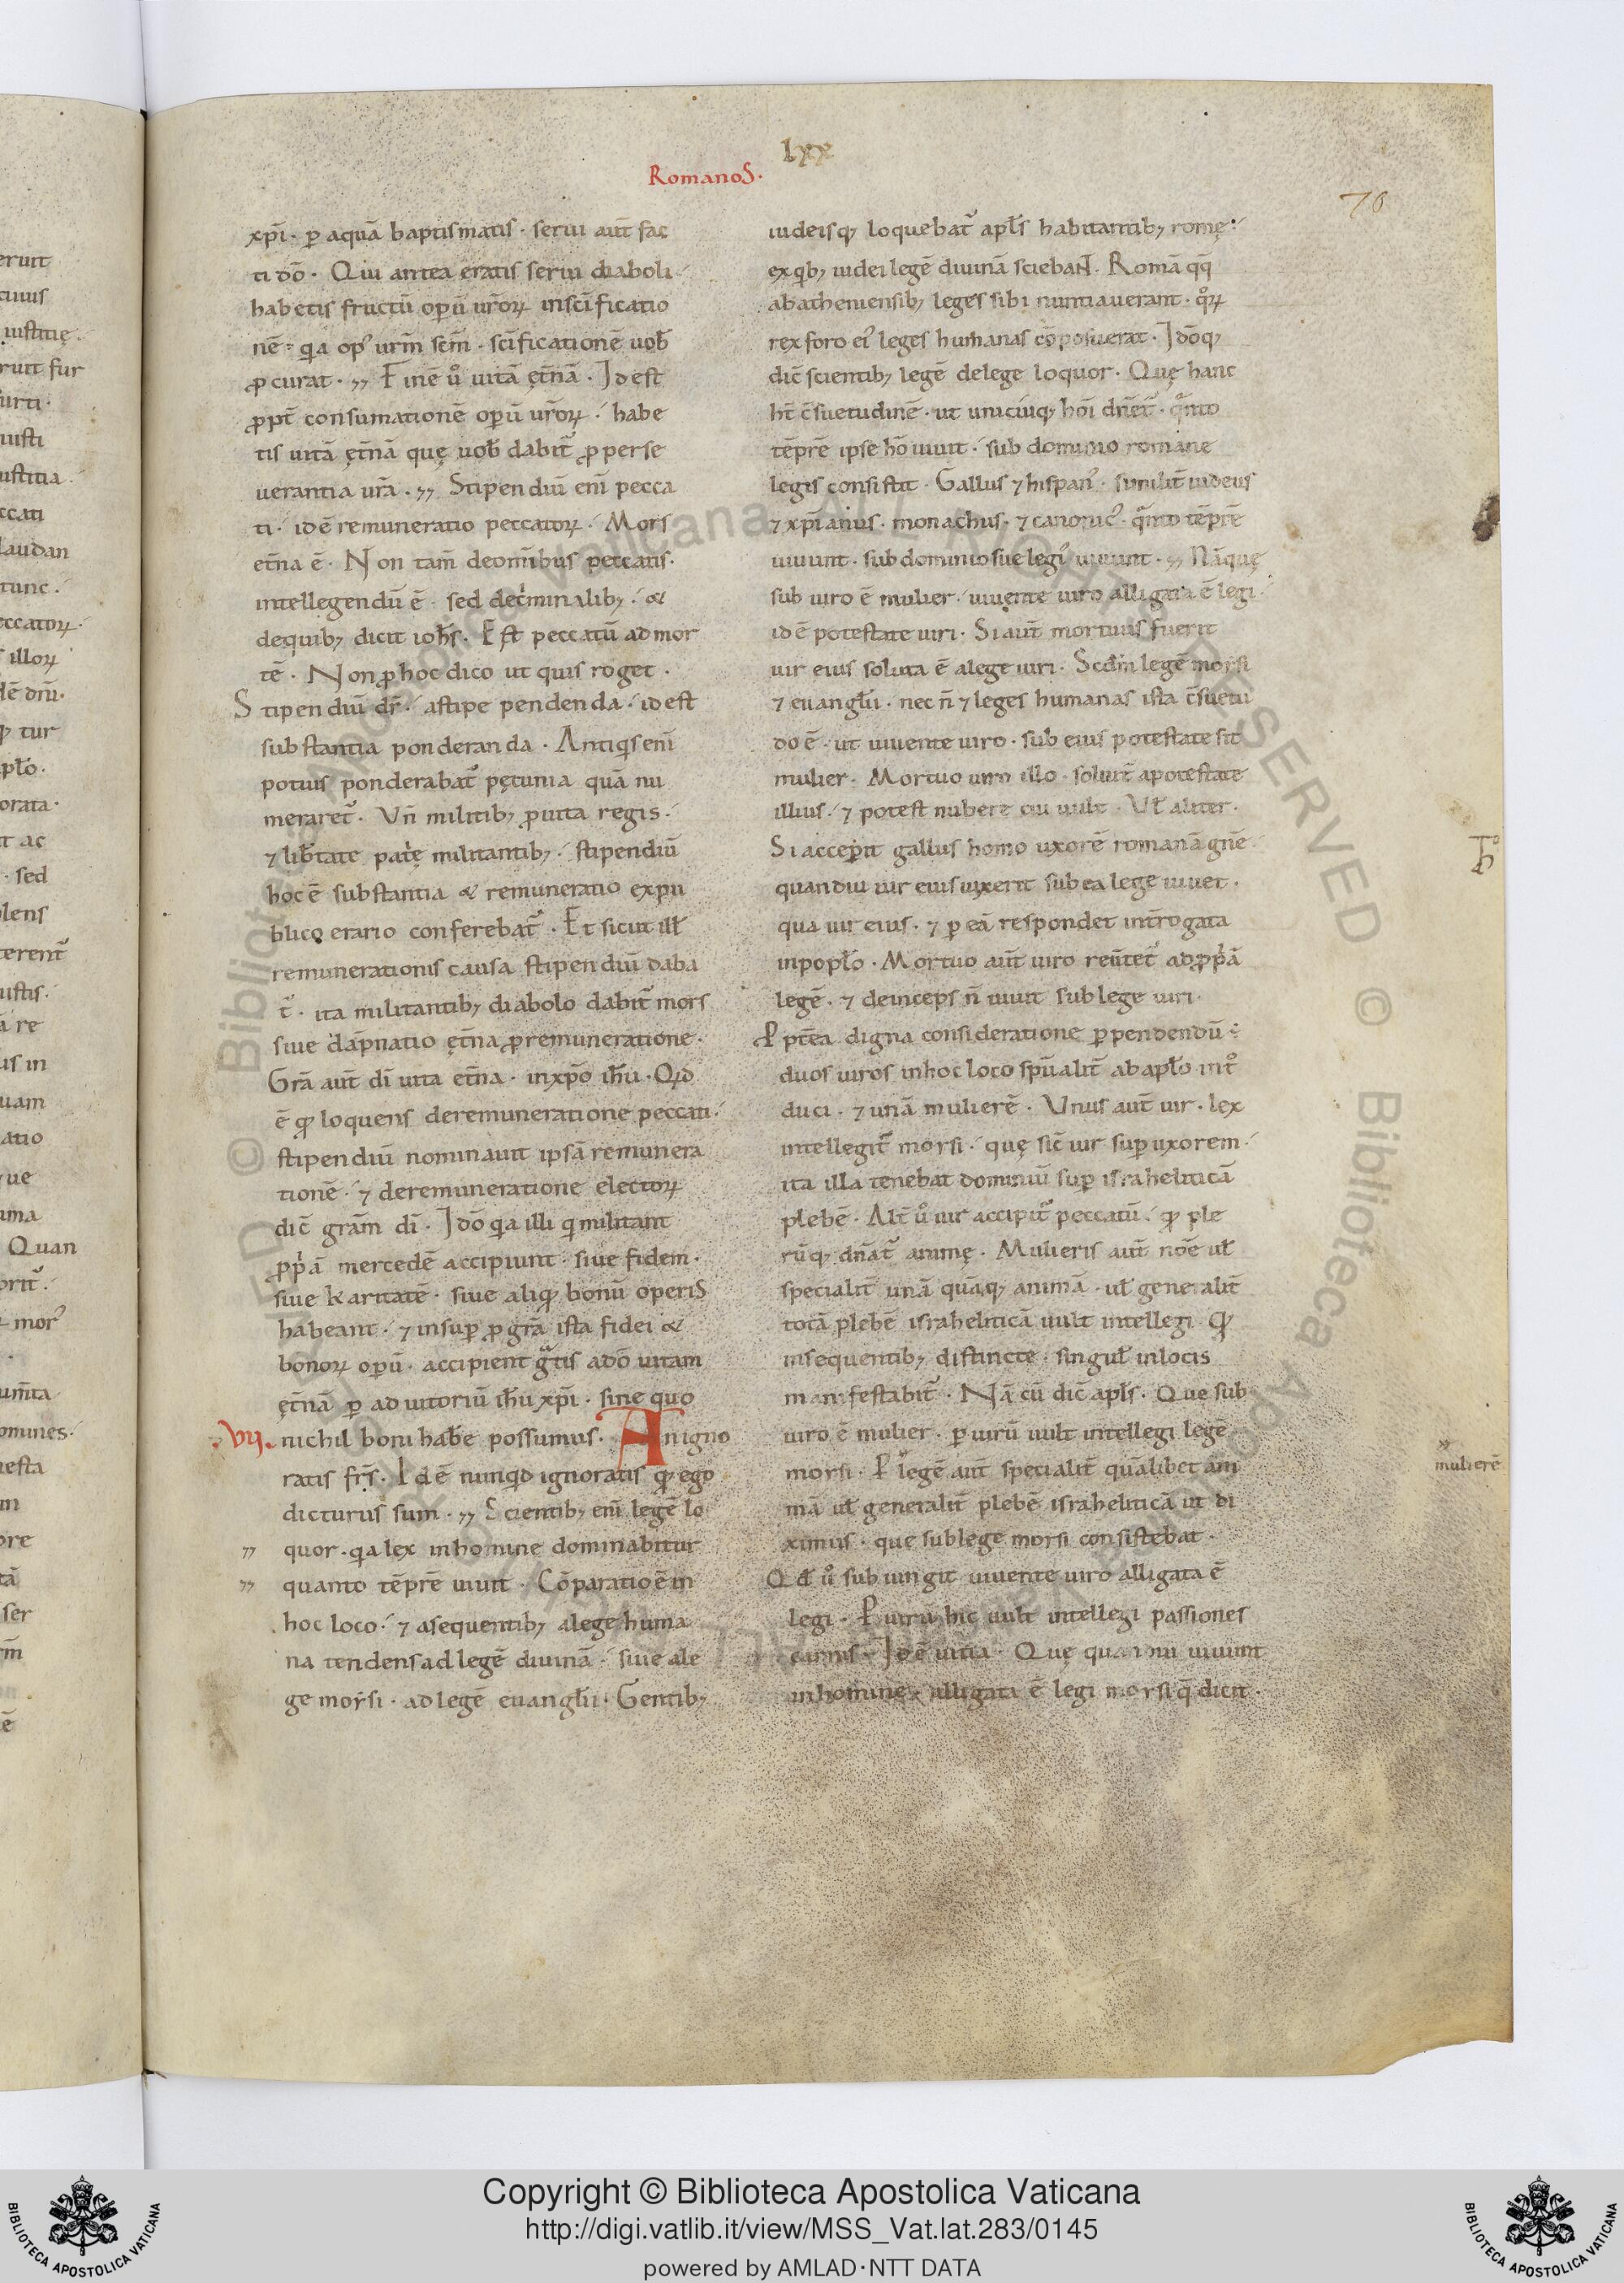 lxx
Romanos.
70
xp̄i · ꝑ aquā baptismatis · serui aut̄ fac
ti dō · Qui antea eratis serui diaboli ·
habetis fructū oꝑū ur̄oꝝ in sc̄ificatio
nē · qia op᾿ ur̄m sc̄m · sc̄ificationē uob̄
ꝓcurat · ,, Finē u͛o uitā ęt̄nā · Id est
ꝓpt̄ consumationē oꝑū ur̄oꝝ · habe
tis uitā ęt̄nā quę uob̄ dabit᷑ ꝓ perse
uerantia ur̄a · ,, Stipendiū eni̅ pecca
ti · id ē remuneratio peccatoꝝ · Mors
et̄na ē · Non tam̄ de om̄ibus peccatis ·
intellegendū ē · sed de c͛minalib; · &
de quib; dicit ioh̄s · Est peccatū ad mor
tē · Non ꝓ hoc dico ut quis roget ·
Stipendiū dr̄ · a stipe pendenda · id est
substantia ponderanda · Antiq͛s eni̅
potius ponderabat᷑ pęcunia quā nu
meraret᷑ · Vn̄ militib; ꝓ uita regis ·
⁊ lib̄tate pat͛ę militantib; · stipendiū
hoc ē substantia & remuneratio ex pu
blico erario conferebat᷑ · Et sicut ill̄
remunerationis causa stipendiū daba
t᷑ · ita militantib; diabolo dabit᷑ mors
siue dāpnatio ęt̄na ꝓ remuneratione ·
Gr̄a aut̄ dī uita et̄na · in xp̄o ih̄u · Qid
ē ꝙ loquens de remuneratione peccati ·
stipendiū nominauit ipsā remunera
tionē · ⁊ de remuneratione electoꝝ
dic̄ gr̄am dī · Idō qia illi qi militant
ꝓp͛ā mercedē accipiunt · siue fidem ·
siue karitatē · siue aliqꝫ bonū operis
habeant · ⁊ insuꝑ ꝓ gr̄a ista fidei &
bonoꝝ oꝑū · accipient gͣtis a dō uitam
ęt̄nā ꝑ adiutoriū ih̄u xp̄i · sine quo
.VII. nichil boni hab̄e possumus · An igno
ratis fr̄s · Id ē nunqid ignoratis ꝙ ego
dicturus sum · ,, Scientib; eni̅ legē lo
,, quor · qia lex in homine dominabitur
,, quanto tēpr̄e uiuit · Cōparatio ē in
hoc loco · ⁊ a sequentib; a lege huma
na tendens ad legē diuinā · siue a le
ge moysi · ad legē euangl̄ii · Gentib;
iudeisq; loquebat᷑ apl̄s habitantib; romę ·
ex qib; iudei legē diuinā sciebant · Romā qq̄
ab atheniensib; leges sibi nuntiauerant · qͦꝝ
rex foroei᾿ leges humanas cōposuerat · Idōq;
dic̄ scientib; legē de lege loquor · Quę hanc
ht̄ c̄suetudinē · ut unicuiq; hōi dn̄et᷑ · qͣnto
tēpr̄e ipse hō uiuit · sub dominio romane
legis consistit · Gallus ⁊ hispan᾿ · similit̄ iudeus
⁊ xp̄ianus · monachus · ⁊ canonic᾿ · qͣnto tēpr̄e
uiuunt · sub dominio sue legi᾿ uiuunt · ,, Nā quę
sub uiro ē mulier · uiuente uiro alligata ē legi ·
id ē potestate uiri · Si aut̄ mortuus fuerit
uir eius soluta ē a lege uiri · Scd̄m legē moysi
⁊ euangl̄ii · nec n̄ ⁊ leges humanas ista c̄suetu
do ē · ut uiuente uiro · sub eius potestate sit
mulier · Mortuo uiro illo · soluit᷑ a potestate
illius · ⁊ potest nubere cui uult · Vl̄ aliter ·
Si acceꝑit gallus homo uxorē romanā gn̄e
quandiu uir eius uixerit sub ea lege uiuet ·
qua uir eius · ⁊ ꝑ eā respondet int̄rogata
in pop̄lo · Mortuo aut̄ uiro reu͛tet᷑ ad ꝓp͛ā
legē · ⁊ deinceps n̄ uiuit sub lege uiri ·
Pͥpt̄ea digna consideratione ꝑpendendū ē
duos uiros in hoc loco spū alit̄ ab apl̄o intͦ
duci · ⁊ unā mulierē · Vnus aut̄ uir · lex
intellegit᷑ moysi · quę sic̄ uir suꝑ uxorem ·
ita illa tenebat dominiū suꝑ israheliticā
plebē · Alt̄ u͛o uir accipit᷑ peccatū · ꝙ ple
rūq; dn̄at᷑ animę · Mulieris aut̄ noē ul̄
specialit̄ unā quāq; animā · ul̄ generalit̄
totā plebē israheliticā uult intellegi · Ꝙ
in sequentib; distincte · singul̄ in locis
manifestabit᷑ · Nā cū dic̄ apl̄s · Que sub
uiro ē mulier · ꝑ uirū uult intellegi legē
moysi · P legē aut̄ specialit̄ qūalibet ani
mā ul̄ generalit̄ plebē israheliticā ut di
ximus · que sub lege moysi consistebat ·
Qd̄ u͛o subiungit uiuente uiro alligata ē
legi · P uirū hic uult intellegi passiones
carnis · Id ē uitia · Quę quandiu uiuunt
in homine · alligata ē legi moysi q̄ dicit ·
,, mulierē
Copyright © Biblioteca Apostolica Vaticana
http://digi.vatlib.it/view/MSS_Vat.lat.283/0145
powered by AMLAD·NTT DATA
BIBLIOTECA APOSTOLICA VATICANA
BIBLIOTECA APOSTOLICA VATICANA